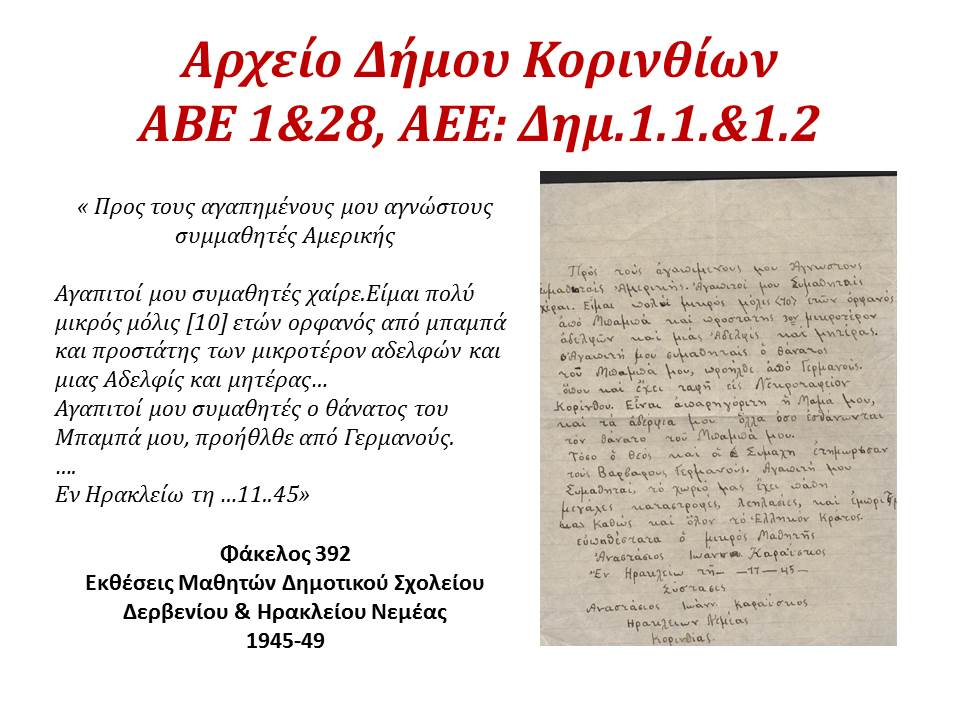 Αρχείο Δήμου Κορινθίων
ΑΒΕ 1&28, ΑΕΕ: Δημ.1.1.&1.2
« Προς τους αγαπημένους μου αγνώστους
συμμαθητές Αμερικής
Αγαπιτοί μου συμαθητές χαίρε.Είμαι πολύ
μικρός μόλις [10] ετών ορφανός από μπαμπά
και προστάτης των μικροτέρον αδελφών και
μιας Αδελφίς και μητέρας...
Αγαπιτοί μου συμαθητές ο θάνατος του
Μπαμπά μου, προήθλθε από Γερμανούς.
....
Εν Ηρακλείω τη ...11..45»
Φάκελος 392
Εκθέσεις Μαθητών Δημοτικού Σχολείου
Δερβενίου & Ηρακλείου Νεμέας
1945-49
Πρὸς τοὺς ἀγαπιμενους μου Ἀγνωστους
Ἀμερικῆς. Ἀγαπιτοί μου Συμαθηταίς
Εἶμαι πολοί μικρός μόλις (10) ἐτῶν ὀρφανός
ἀπό Μπαμπά καί προστάτης 3ον μικροτέρον
ἀδελφῶν καί μιάς Ἀδελφίς καί μητέρας.
Ἀγαπιτή μου συμαθηταίς ὁ θάνατος
τοῦ Μπαμπά μου, προῆλθε ἀπό Γερμανοίς.
ὅπου καί ἔχει ταφῆ εἰς Νεκροταφείον
Κορίνθου. Εἶναι ἀπαρηγόριτη ἡ Μαμά μου,
καί τά ἀδέρφια μου ὅλλα ὅσο ἐσθάνωνται
τόν θάνατο τοῦ Μπαμπά μου.
Τόσο ὁ θεός καί οἱ Σιμαχη ἐτημωρισαν
τούς Βαρβαρους Γερμανούς. Ἀγαπιτή μου
Συμαθηταί, τό χωριό μας ἔχει πάθη
μεγάλες καταστροφές, λεηλασίες, καί
μας καθώς καί ὅλον τό Ἑλληνικόν Κράτος.
εὐπηθέστατα ὁ μικρός Μαθητής
Ἀναστάσιος Ἰωάνν Καραΐσκος
Ἐν Ηρακλειω τῆ — — 11 — 45 —
Σύστασις
Αναστάσιος Ἰωάνν Καραΐσκος
Ηρακλειων Νεμέας
Κορινθίας.